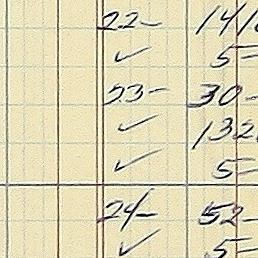 22- 141
✓ 5-
23- 30-
✓ 132
✓ 5-
24- 52-
✓ 5-